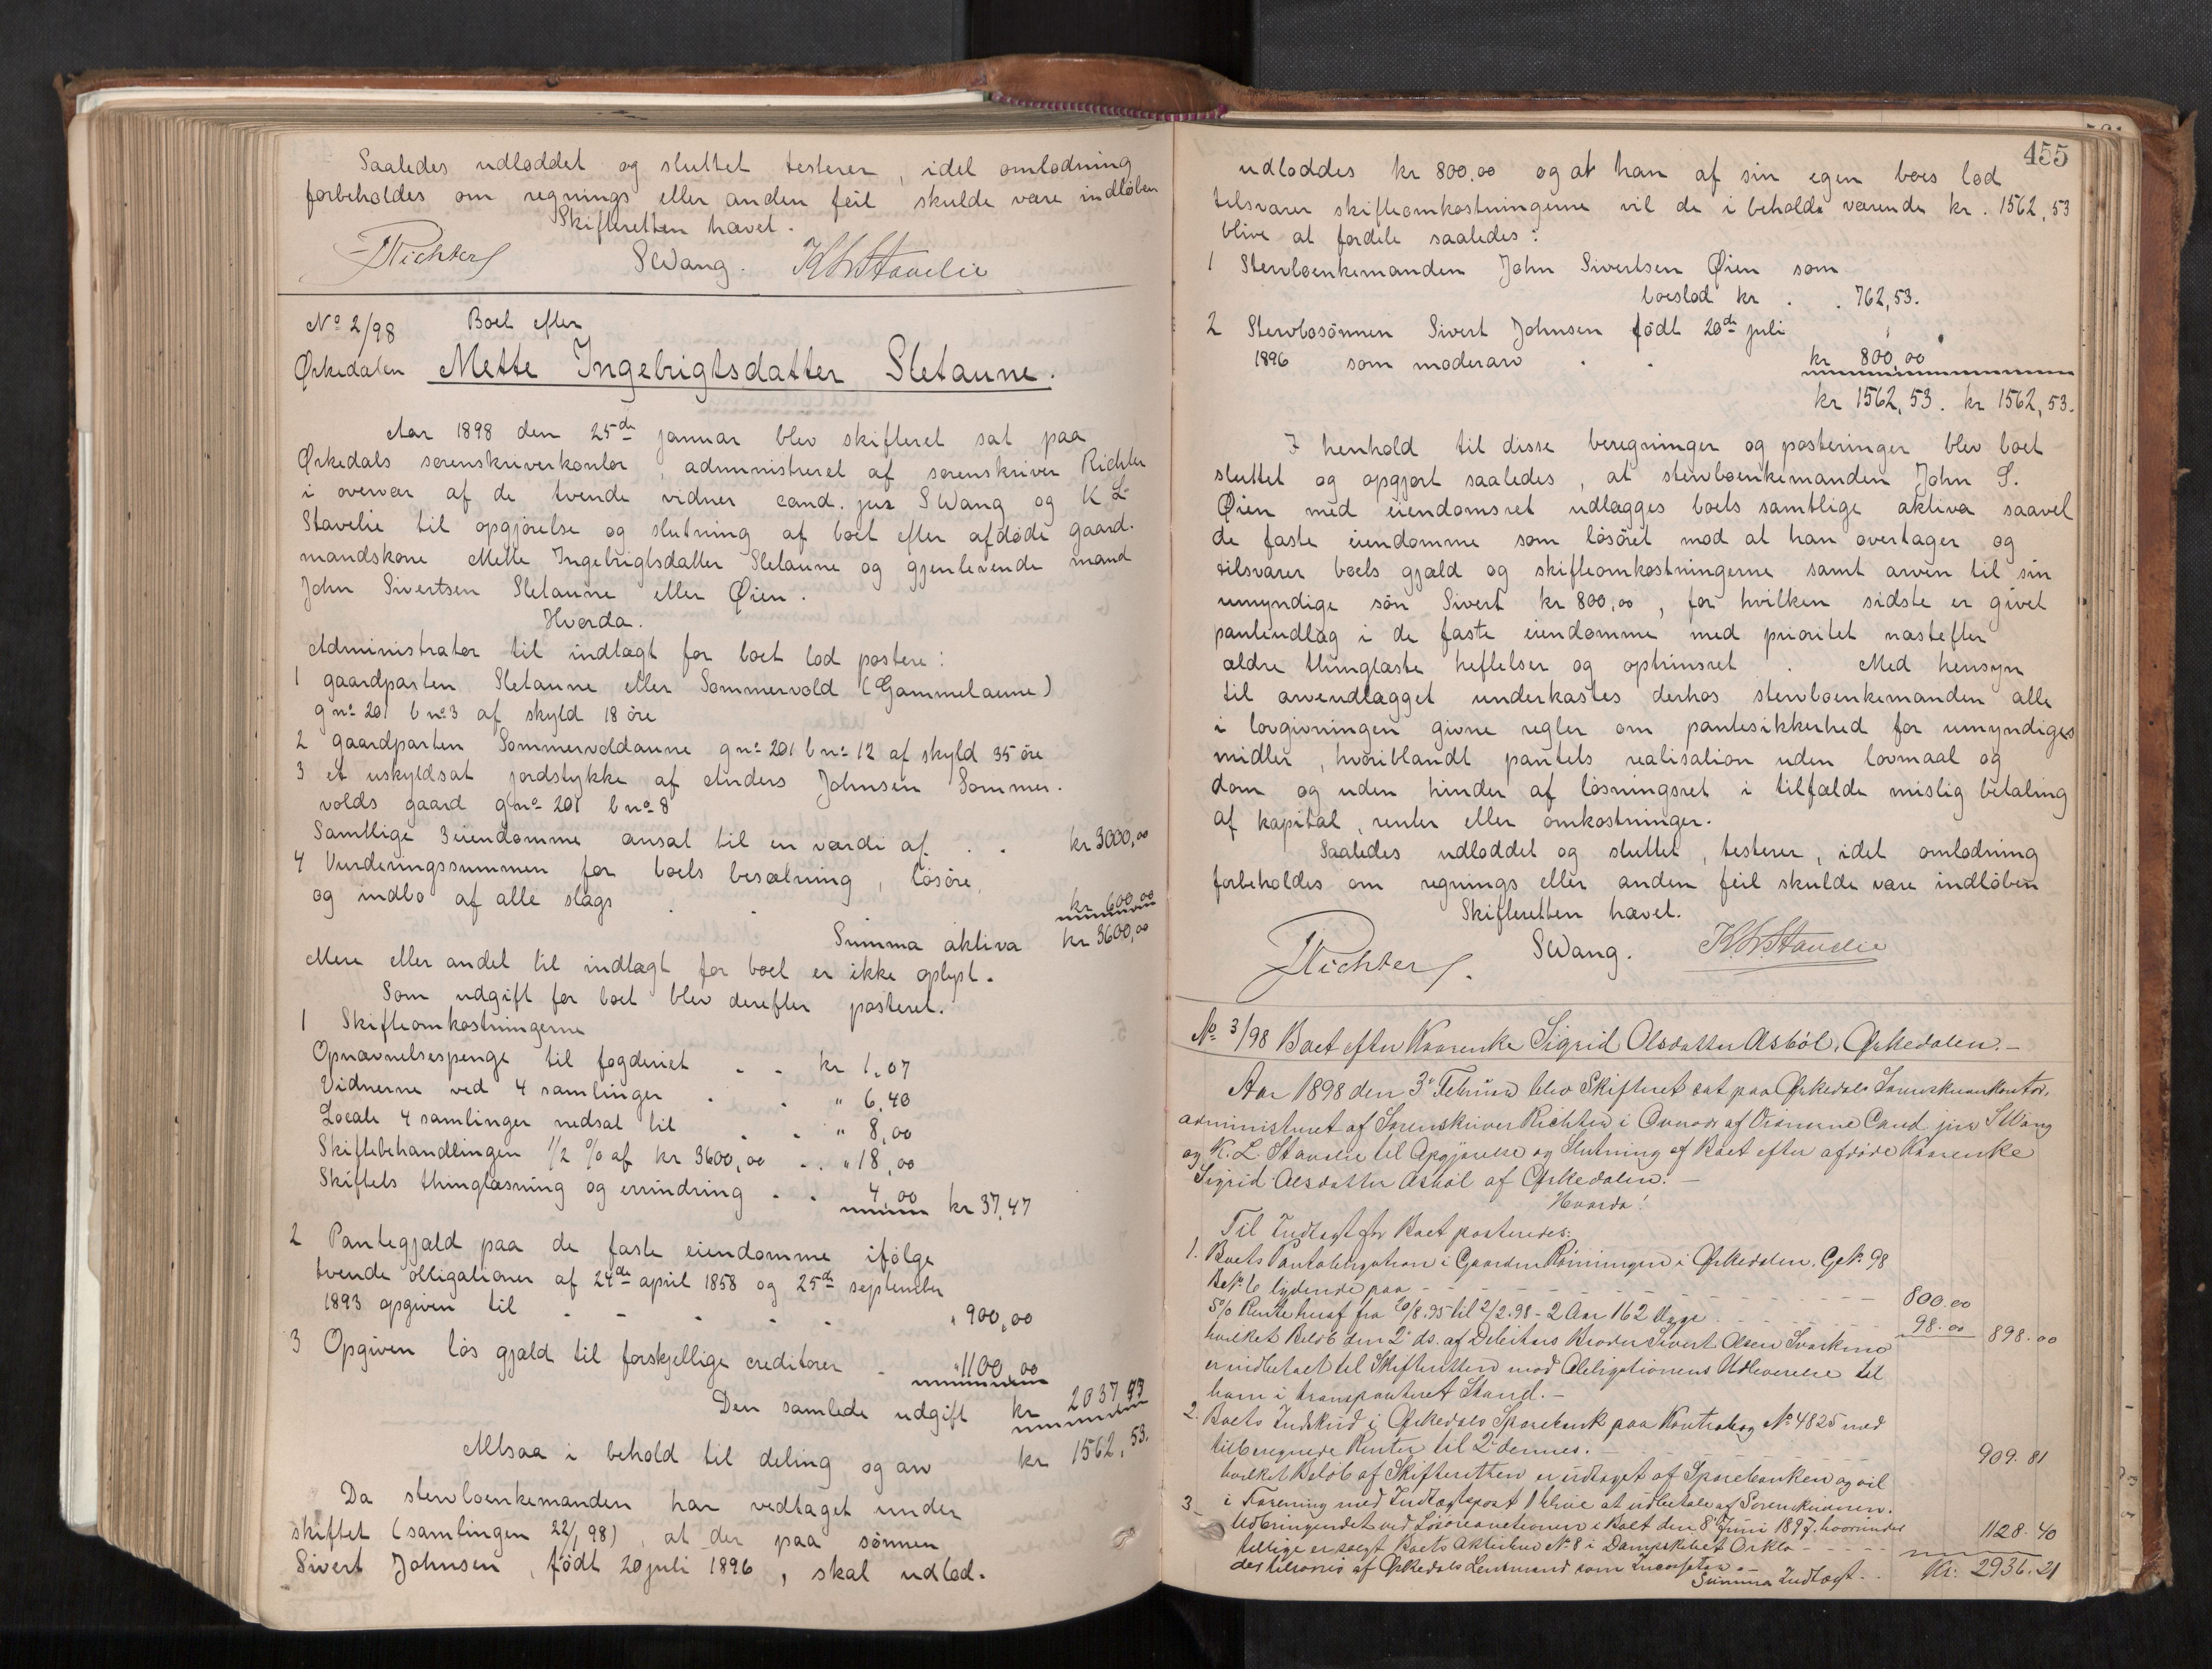 Saaledes udloddet og sluttet testerer, idet omlodning
forbeholdes om regnings eller anden feil skulde være indløben
Skifteretten hævet.
Richter SWang. KLStavelie
No 2/98 Boet efter
Ørkedalen Mette Ingebrigtsdatter Sletaune.
Aar 1898 den 25de januar blev skifteret sat paa
Ørkedals sorenskriverkontor, administreret af sorenskriver Richter
i overvær af de tvende vidner cand. jur SWang og K L
Stavelie til opgjørelse og slutning af boet efter afdøde gaard-
mandskone Mette Ingebrigtsdatter Sletaune og gjenlevende mand
John Sivertsen Sletaune eller Øien.
Hvorda.
Administrator til indtægt for boet lod postere:
1 gaardparten Sletaune eller Sommervold (Gammelaune)
g no 201 b no 3 af skyld 18 øre
2 gaardparten Sommervoldaune g no 201 b no 12 af skyld 35 øre
3 et uskyldsat jordstykke af Anders Johnsen Sommer-
volds gaard g no 201 b no 8
Samtlige 3 eiendomme ansat til en værdi af . . kr 3000,00
4 Vurderingssummen for boets besætning, løsøre,
og indbo af alle slags . . kr 600,00
Summa aktiva kr 3600,00
Mere eller andet til indtægt for boet er ikke oplyst.
Som udgift for boet blev derefter posteret.
1 Skifteomkostningerne
Opnævnelsespenge til fogderiet . . kr 1,07
Vidnerne ved 4 samlinger . . " 6,40
Locale 4 samlinger nedsat til . . " 8,00
Skiftebehandlingen 1/2 % af kr 3600,00 . . " 18,00
Skiftets thinglæsning og erindring . . 4,00 kr 37,47
2 Pantegjæld paa de faste eiendomme ifølge
tvende obligationer af 24de april 1858 og 25de september
1893 opgiven til - - - - - " 900,00
3 Opgiven løs gjæld til forskjellige creditorer - " 1100,00
Den samlede udgift kr 2037,47
Altsaa i behold til deling og arv kr 1562,53.
Da stervboenkemanden har vedtaget under
skiftet (samlingen 22/1 98), at der paa sønnen
Sivert Johnsen, født 20 juli 1896, skal udlod-
455
udloddes kr 800,00 og at han af sin egen boes lod
tilsvarer skifteomkostningerne vil de i behold værende kr. 1562,53
blive at fordele saaledes:
1 Stervboenkemanden John Sivertsen Øien som
boeslod kr . . 762,53.
2 Stervbosønnen Sivert Johnsen født 20de juli
1896 som moderarv . . kr 800,00
kr 1562,53. kr 1562,53.
I henhold til disse beregninger og posteringer blev boet
sluttet og opgjort saaledes, at stervboenkemanden John S.
Øien med eiendomsret udlægges boets samtlige aktiva saavel
de faste eiendomme som løsøret mod at han overtager og
tilsvarer boets gjæld og skifteomkostningerne samt arven til sin
umyndige søn Sivert kr 800,00, for hvilken sidste er givet
panteudlæg i de faste eiendomme med prioritet næstefter
ældre thinglæste heftelser og optrinsret . Med hensyn
til arveudlægget underkastes derhos stervboenkemanden alle
i lovgivningen givne regler om pantesikkerhed for umyndiges
midler, hvoriblandt pantets realisation uden lovmaal og
dom og uden hinder af løsningsret i tilfælde mislig betaling
af kapital, renter eller omkostninger.
Saaledes udloddet og sluttet, testerer, idet omlodning
forbeholdes om regnings eller anden feil skulde være indløben
Skifteretten hævet.
Richter. SWang. K.L.Stavelie
No 3/98 Boet efter Kaarenke Sigrid Olsdatter Asbøl, Ørkedalen.-
Aar 1898 den 3' Februar blev Skifteret sat paa Ørkedals Sorenskriverkontor,
administreret af Sorenskriver Richter i Overvær af Vidnerne Cand jur SWang
og K. L. Stavelie til Opgjørelse og Slutning af Boet efter afdøde Kaarenke
Sigrid Olsdatter Asbøl af Ørkedalen.-
Hvorda!
Til Indtægt for Boet posteredes:
1. Boets Pantobligation i Gaarden Rønningen i Ørkedalen. G.No 98
B.No 6 lydende paa - - - 800.00
5% Rente heraf fra 20/8.95 til 2/2.98 - 2 Aar 162 Dage - - 98.00 898.00
hvilket Beløb den 2' ds. af Debitors Broder Sivert Olsen Svorkmo
er indbetalt til Skifteretten mod Obligationens Udleverelse til
ham i transporteret Stand.-
2. Boets Indskud i Ørkedals Sparebank paa Kontrabog No 4825 med
tilberegnede Renter til 2' dennes. - - 909.81
hvilket Beløb af Skifteretten er udtaget af Sparebanken og vil
i Forening med Indtægtspost 1 blive at udbetale af Sorenskriveren.
3. Udbringendet ved Løsøreauctionen i Boet den 8' Juni 1897, hvorunder
tillige er solgt Boets Aktiebrev No 8 i Dampskibet Orkla - - - 1128.40
der tilsvares af Ørkedals Lensmand som Incassator.-
Summa Indtægt - - Kr. 2936.21